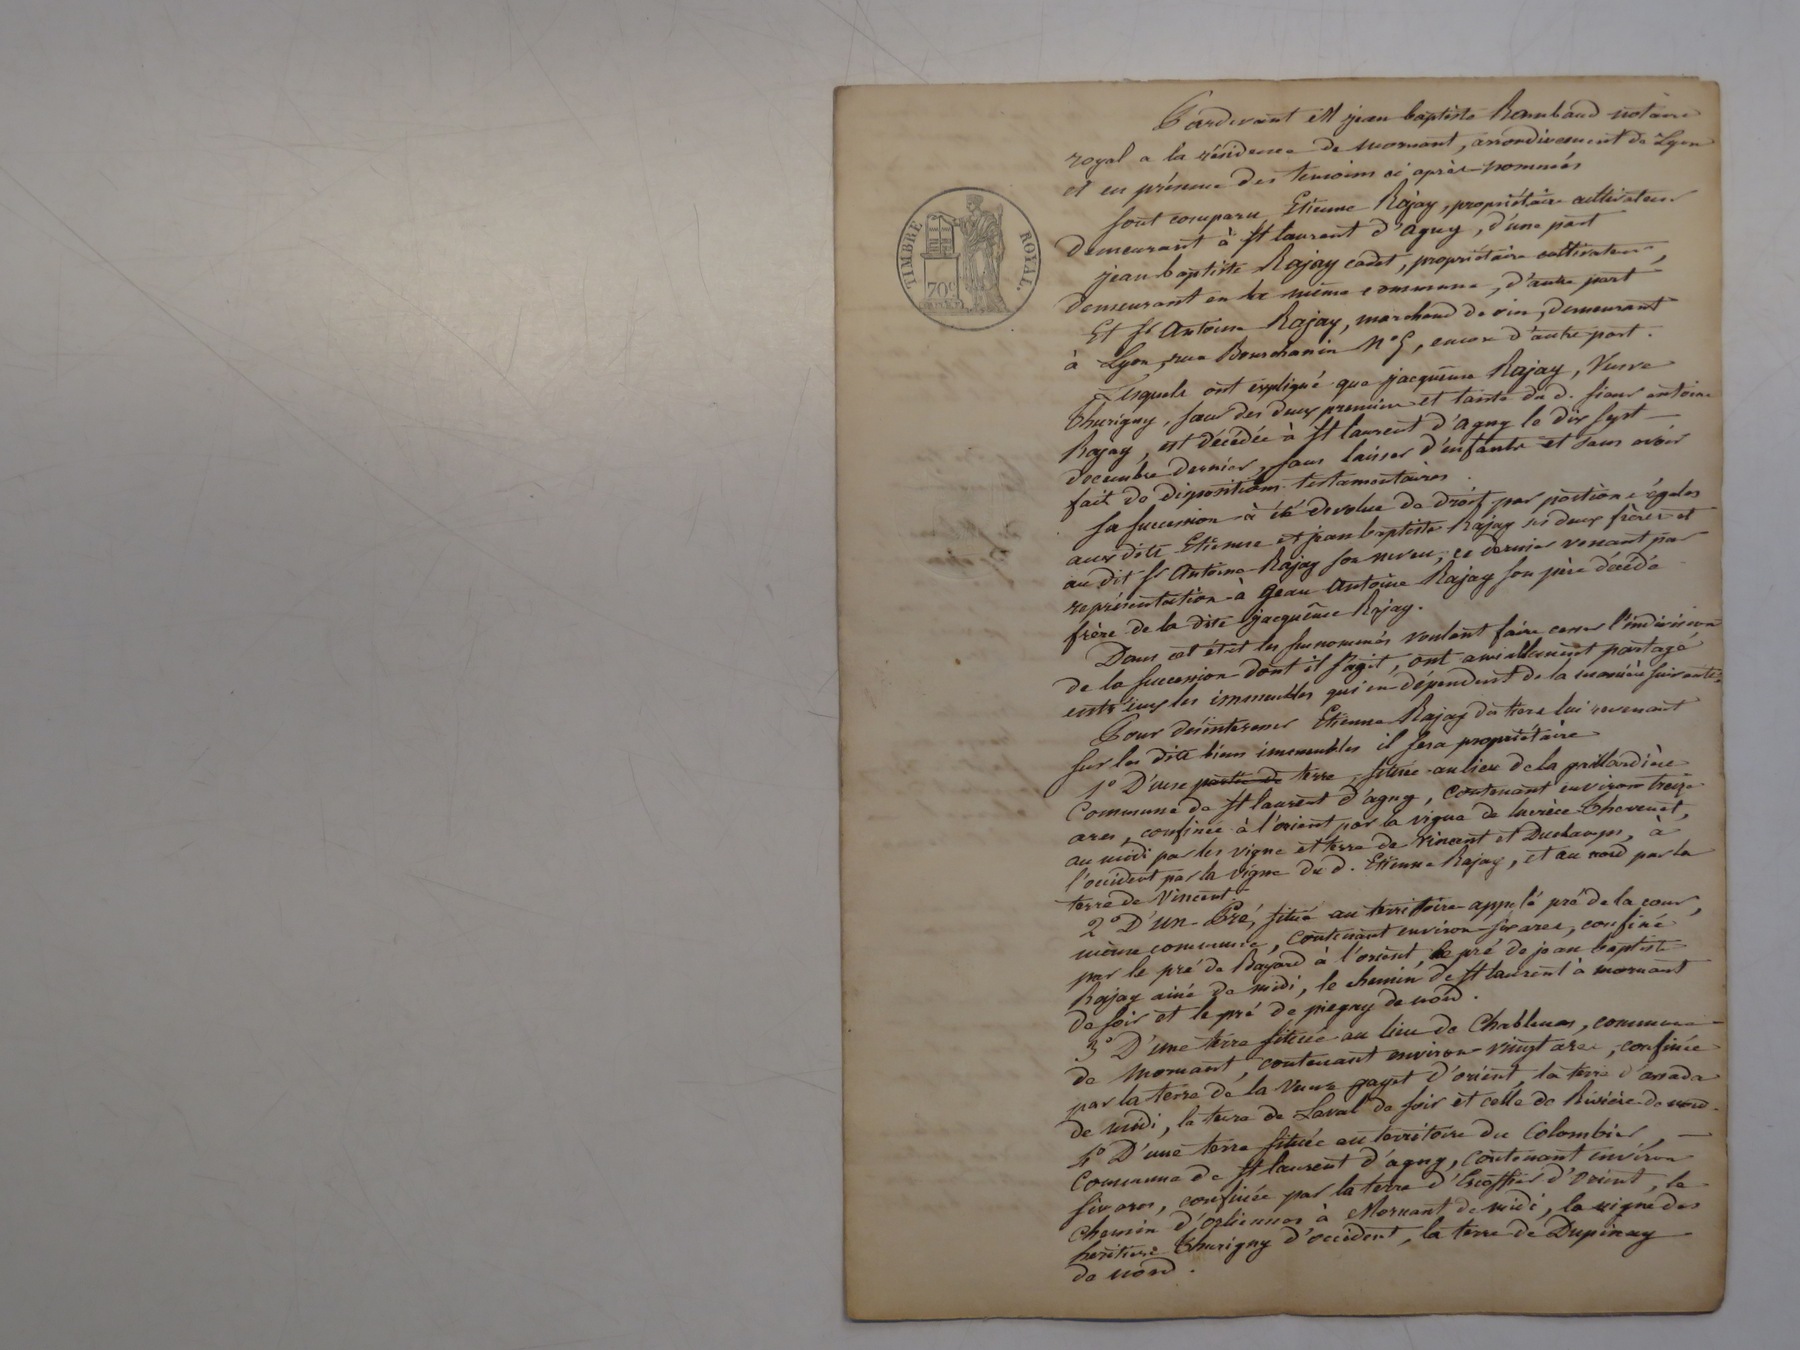 TIMBRE ROYAL.
70c
Pardevant Me jean baptiste Rambaud notaire
royal a la résidence de mornant, arrondissement de Lyon
et en présence des temoins ci après nommés
sont comparu Etienne Rajay, propriétaire cultivateur
demeurant à St laurent d'agny, d'une part
jean baptiste Rajay cadet, propriétaire cultivateur,
demeurant en la même commune, d'autre part
Et Sr Antoine Rajay, marchand de vin, demeurant
à Lyon, rue Bourchanin No 5, encore d'autre part.
Lesquels ont expliqué que jacquême Rajay, Veuve
Thurigny, sœur des deux premiers et tante du d. sieur antoine
Rajay, est décédée à St laurent d'agny le dix sept
decembre dernier, sans laisser d'enfants et sans avoir
fait de dispositions testamentaires.
Sa succession à été devolue de droit par portions égales
aux dits Etienne et jean baptiste Rajay ses deux frères et
au dit Sr Antoine Rajay son neveu, ce dernier venant par
représentation à Jean Antoine Rajay son père décédé
frère de la dite jacquême Rajay.
Dans cet état les susnommés voulant faire cesser l'indivision
de la succession dont il s'agit, ont amiablement partagé
entr'eux les immeubles qui en dépendent de la manière suivante.
Pour désinteresser Etienne Rajay du tiers lui revenant
sur les dits biens immeubles il sera propriétaire
1o D'une partie de terre, située au lieu de la gaillardière
Commune de St laurent d'agny, contenant environ treize
ares, confinée à l'orient par la vigne de Thevenet,
au midi par les vigne et terre de Vincent et Duchamp, à
l'occident par la vigne du d. Etienne Rajay, et au nord par la
terre de Vincent.
2o D'un Pré, situé au territoire appelé pré de la cour,
même commune, contenant environ six ares, confiné
par le pré de Bayard à l'orient, le pré de jean baptiste
Rajay ainé de midi, le chemin de St laurent à mornant
de soir et le pré de piegay de nord.
3o D'une terre située au lieu de Chablenas, commune
de Mornant, contenant environ vingt ares, confinée
par la terre de la Veuve payet d'orient, la terre
de midi, la terre de Laval de soir et celle de Rivière de nord.
4o D'une terre située au territoire du Colombier,
Commune de St laurent d'agny, contenant environ
six ares, confinée par la terre d'Escoffier d'orient, le
chemin d'orliennas à Mornant de midi, la vigne des
heritiers Thurigny d'occident, la terre de Dupinay
de nord.